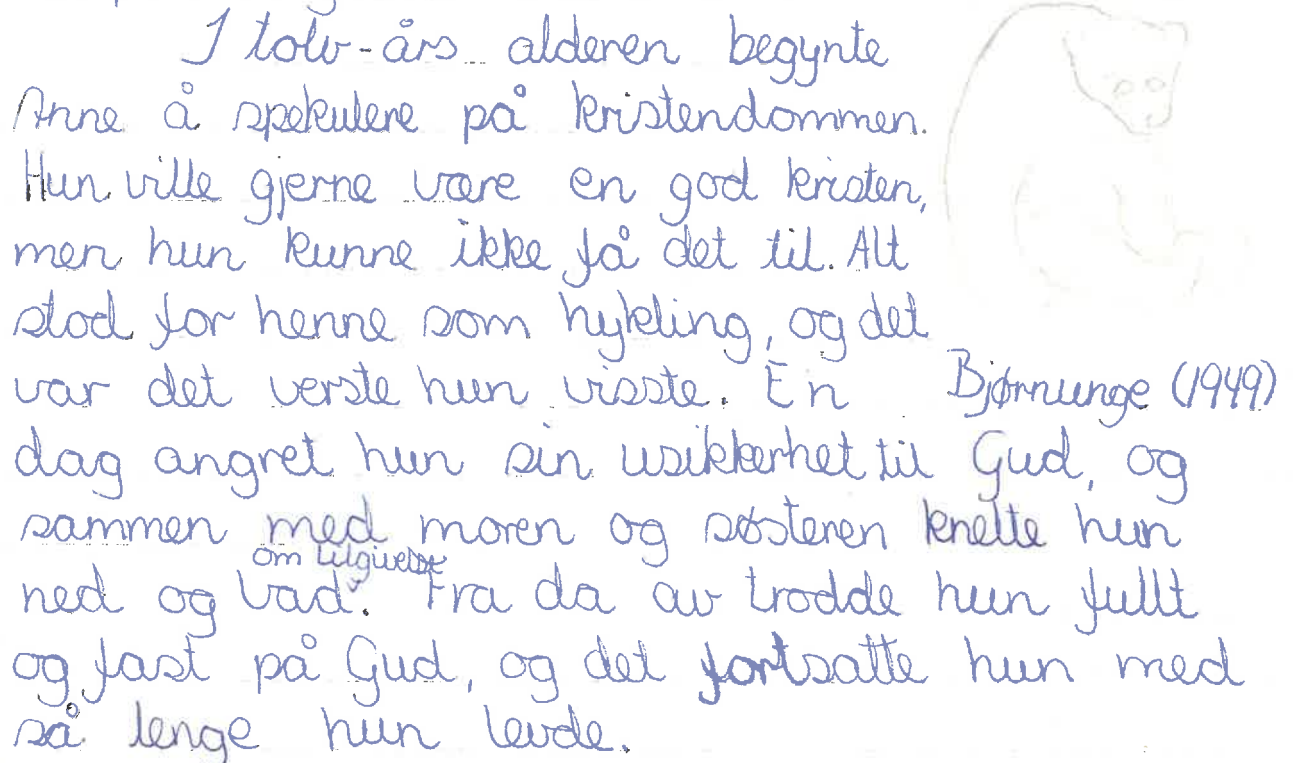 I tolv-års alderen begynte
Anne å spekulere på kristendommen.
Hun ville gjerne være en god kristen,
men hun kunne ikke få det til. Alt
stod for henne som hykling, og det
var det verste hun visste. En
Bjørnunge (1949)
dag angret hun sin usikkerhet til Gud, og
sammen med moren og søsteren knelte hun
om tilgivelse
ned og bad. Fra da av trodde hun fullt
og fast på Gud, og det fortsatte hun med
så lenge hun levde.